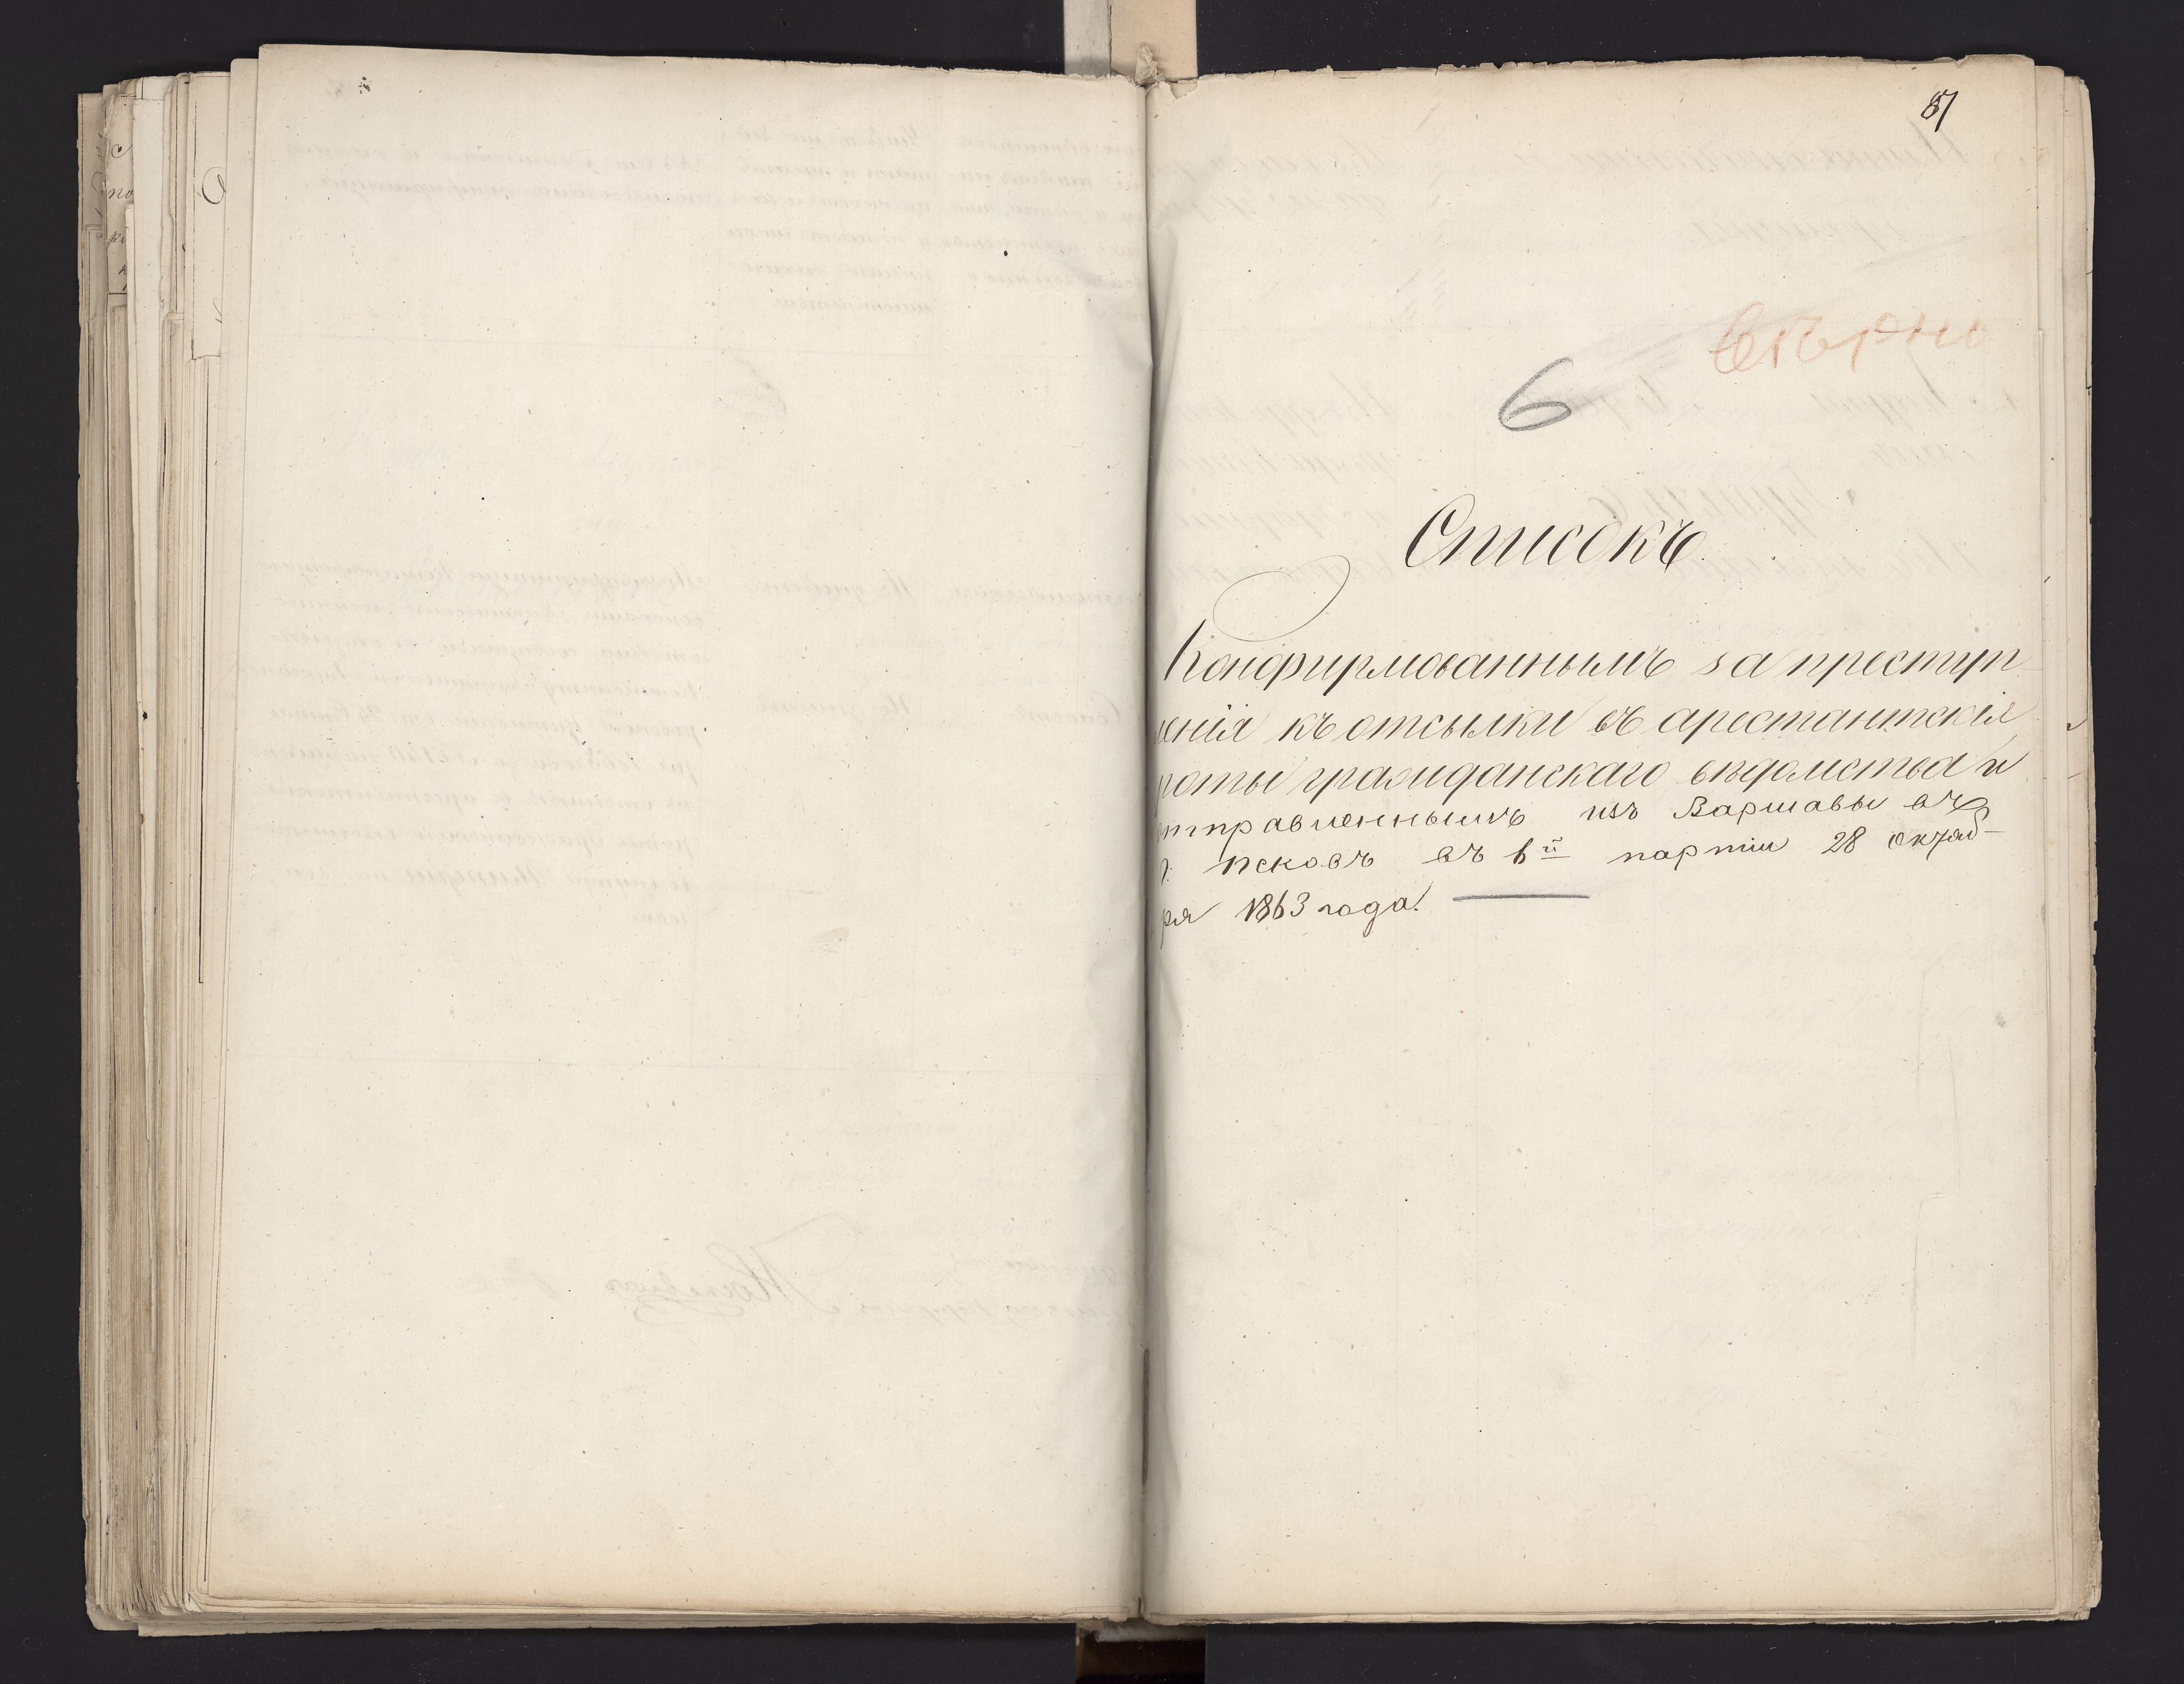 87
вѣрно
6
Списокъ.
Конфирмованнымъ за преступ
ленія къ отсылки въ арестантскія
роты гражданскаго вѣдомства и
отправленнымъ изъ Варшавы въ
г. Псковъ въ 6й партіи 28 октяб-
ря 1863 года.